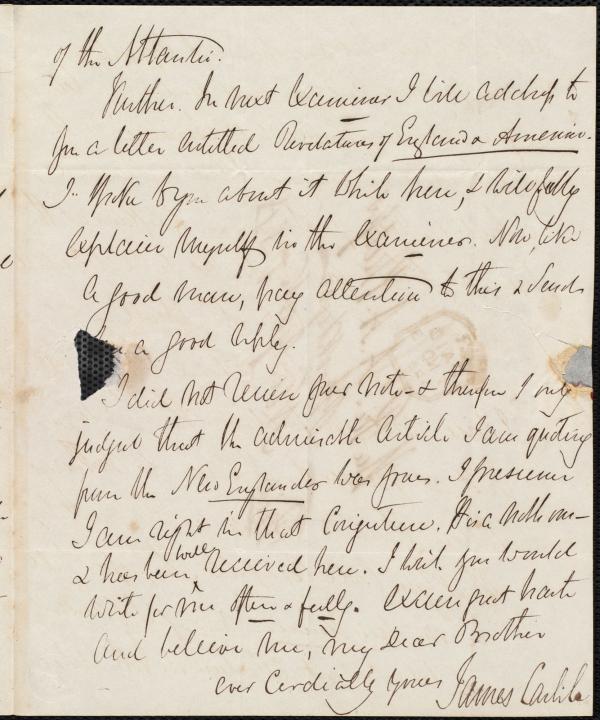 of the Atlantic.
Further. In next Examiner I will address to
you a letter entitled Revelations of England & America.
I spoke to you about it while here, & will fully
explain myself in the Examiner. Now, like
a good man, pay attention to this & send
me a good reply.
I did not receive your note - & therefore I only
judged that the admirable article I am quoting
from the New Englander was yours. I presume
I am right in that conjecture. It is a noble one -
& has been well received here. I wish you would
write for me often & fully. Excuse great haste
and believe me, my dear Brother
ever cordially yours James Carlile